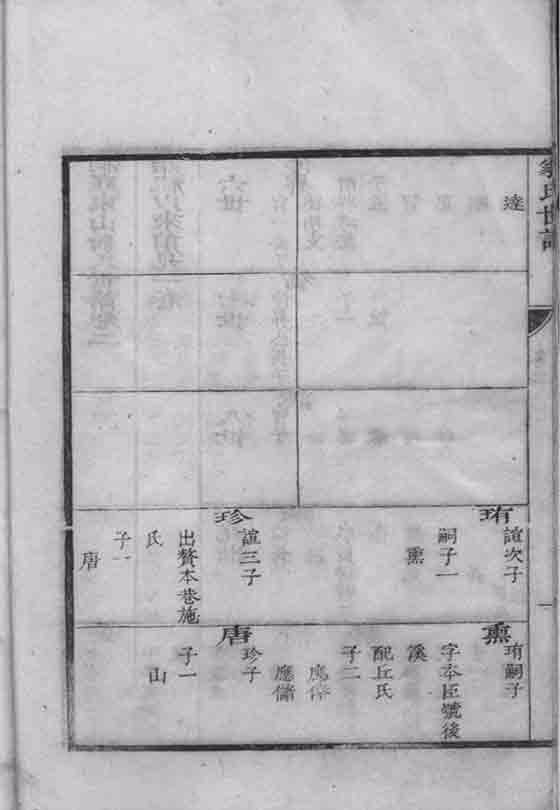 翁氏世譜
達
珛
誼次子
嗣子一
熏
珍
誼三子
出贅本巷施
氏
子一
唐
熏
珛嗣子
字奉臣號後
溪
配丘氏
子二
應儲
唐
珍子
子一
山